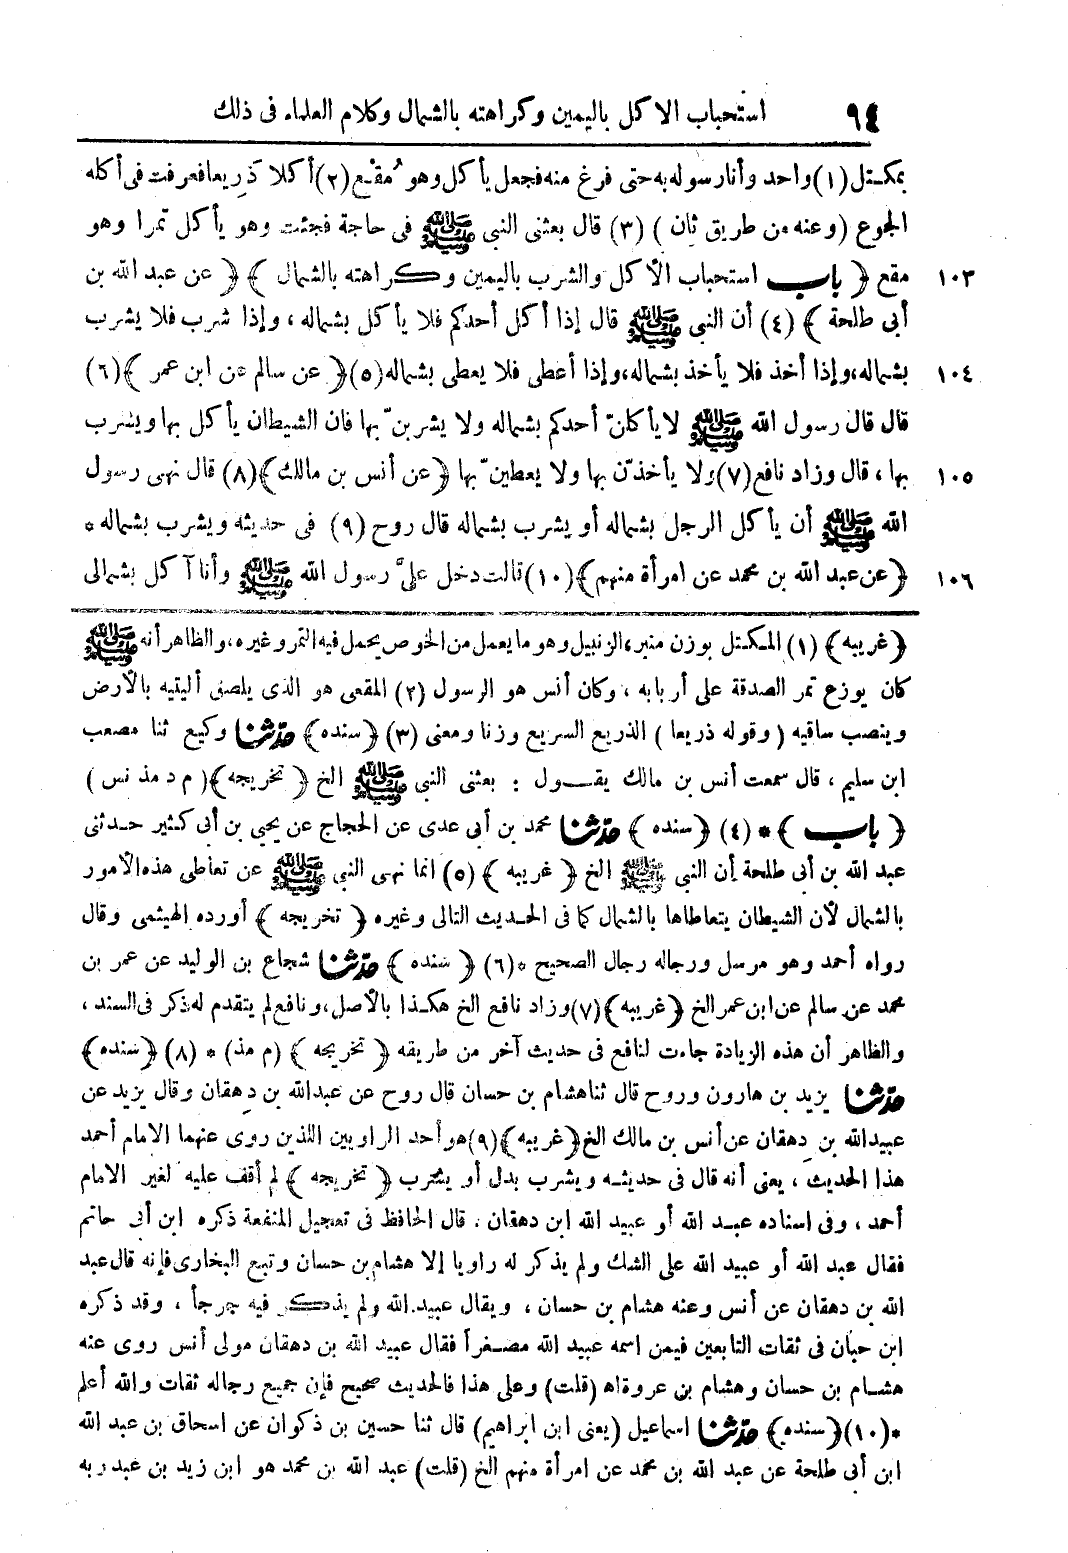 ٩٤ استحباب الاكل باليمين وكراهته بالشمال وكلام العلماء فى ذلك
بمكـتل (١) واحد وأنا رسوله به حتى فرغ منه فجعل يأكل وهو مُقْعٍ (٢) أكلا ذَرِيعا فعرفت فى أكله
الجوع (وعنه من طريق ثان ) (٣) قال بعثنى النبى ﷺ فى حاجة فجئت وهو يأكل تمرا وهو
١٠٣ مقع ﴿ باب استحباب الأكل والشرب باليمين وكراهته بالشمال ﴾ ﴿ عن عبد الله بن
أبى طلحة ﴾ (٤) أن النبى ﷺ قال إذا أكل أحدكم فلا يأكل بشماله ، وإذا شرب فلا يشرب
١٠٤ بشماله،وإذا أخذ فلا يأخذ بشماله،وإذا أعطى فلا يعطى بشماله(٥)﴿ عن سالم عن ابن عمر ﴾(٦)
قال قال رسول الله ﷺ لايأكلنّ أحدكم بشماله ولا يشربنّ بها فان الشيطان يأكل بها ويشرب
١٠٥ بها ، قال وزاد نافع(٧)ولا يأخذنّ بها ولا يعطينّ بها ﴿عن أنس بن مالك﴾(٨) قال نهى رسول
الله ﷺ أن يأكل الرجل بشماله أو يشرب بشماله قال روح (٩) فى حديثه ويشرب بشماله *
١٠٦ ﴿عن عبد الله بن محمد عن امرأة منهم﴾(١٠)قالت دخل علىَّ رسول الله ﷺ وأنا آكل بشمالى
﴿غريبه﴾ (١) المكـتل بوزن منبر،الزنبيل وهو مايعمل من الخوص يحمل فيه التمر وغيره،والظاهر أنه ﷺ
كان يوزع تمر الصدقة على أربابه ، وكان أنس هو الرسول (٢) المقعى هو الذى يلصق أليتيه بالأرض
وينصب ساقيه ( وقوله ذريعا ) الذريع السريع وزنا ومعنى (٣) ﴿سنده﴾ حدّثنا وكيع ثنا مصعب
ابن سليم ، قال سمعت أنس بن مالك يقـول : بعثنى النبى ﷺ الخ ﴿ تخريجه﴾( م د مذ نس )
﴿ باب ﴾ * (٤) ﴿سنده ﴾ حدّثنا محمد بن أبى عدى عن الحجاج عن يحيي بن أبى كثير حـدثنى
عبد الله بن أبى طلحة أن النبى ﷺ الخ ﴿ غريبه ﴾ (٥) انما نهى النبى ﷺ عن تعاطى هذه الأمور
بالشمال لأن الشيطان يتعاطاها بالشمال كما فى الحديث التالى وغيره ﴿ تخريجه ﴾ أورده الهيثمى وقال
رواه أحمد وهو مرسل ورجاله رجال الصحيح *(٦) ﴿ سنده ﴾ حدّثنا شجاع بن الوليد عن عمر بن
محمد عن سالم عن ابن عمر الخ ﴿غريبه﴾(٧)وزاد نافع الخ هكـذا بالأصل،ونافع لم يتقدم له ذكر فى السند ،
والظاهر أن هذه الزيادة جاءت لنافع فى حديث آخر من طريقه ﴿ تخريجه ﴾ (م مذ) * (٨) ﴿سنده﴾
حدّثنا يزيد بن هارون وروح قال ثنا هشام بن حسان قال روح عن عبدالله بن دهقان وقال يزيد عن
عبيدالله بن دهقان عن أنس بن مالك الخ ﴿غريبه﴾(٩)هو أحد الراويين اللذين روى عنهما الامام أحمد
هذا الحديث ، يعنى أنه قال فى حديثـه ويشرب بدل أو يشرب ﴿ تخريجه ﴾ لم أقف عليه لغير الامام
أحمد ، وفى اسناده عبـد الله أو عبيد الله ابن دهقان . قال الحافظ فى تعجيل المنفعة ذكره ابن أبى حاتم
فقال عبد الله أو عبيد الله على الشك ولم يذكر له راويا إلا هشام بن حسان وتبع البخارى فإنه قال عبد
الله بن دهقان عن أنس وعنه هشام بن حسان ، ويقال عبيد الله ولم يذكر فيه جرحاً ، وقد ذكره
ابن حبان فى ثقات التابعين فيمن اسمه عبيد الله مصـغراً فقال عبيد الله بن دهقان مولى أنس روى عنه
هشـام بن حسان وهشام بن عروة اه (قلت) وعلى هذا فالحديث صحيح فإن جميع رجاله ثقات والله أعلم
*(١٠)﴿سنده﴾ حدّثنا اسماعيل (يعنى ابن ابراهيم) قال ثنا حسين بن ذكوان عن اسحاق بن عبد الله
ابن أبى طلحة عن عبد الله بن محمد عن امرأة منهم الخ (قلت) عبد الله بن محمد هو ابن زيد بن عبد ربه